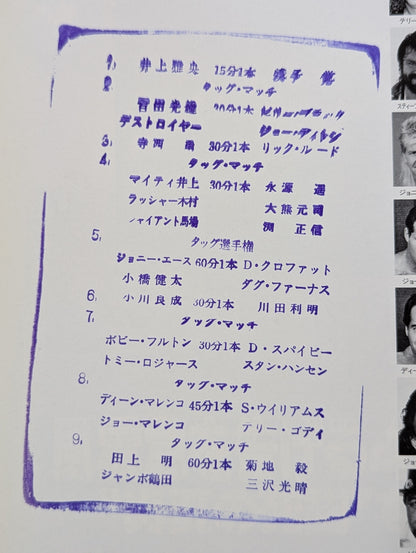 1, 井上雅央 15分1本 浅子 覚
2 タッグ・マッチ
菅田光雄 30分1本
デストロイヤー
3, 寺西 勇 30分1本 リック・ルード
4, タッグ・マッチ
マイティ井上 30分1本 永源 遥
ラッシャー木村 大熊元司
ジャイアント馬場 渕 正信
5, タッグ選手権
ジョニー・エース 60分1本 D・クロファット
小橋健太 ダグ・ファーナス
6, 小川良成 30分1本 川田利明
7, タッグ・マッチ
ボビー・フルトン 30分1本 D・スパイビー
トミー・ロジャース スタン・ハンセン
8, タッグ・マッチ
ディーン・マレンコ 45分1本 S・ウイリアムス
ジョー・マレンコ テリー・ゴディ
9, タッグ・マッチ
田上 明 60分1本 菊地 毅
ジャンボ鶴田 三沢光晴
テリー
スティーブ
ジョニ
ジョ
ディー
ジョ